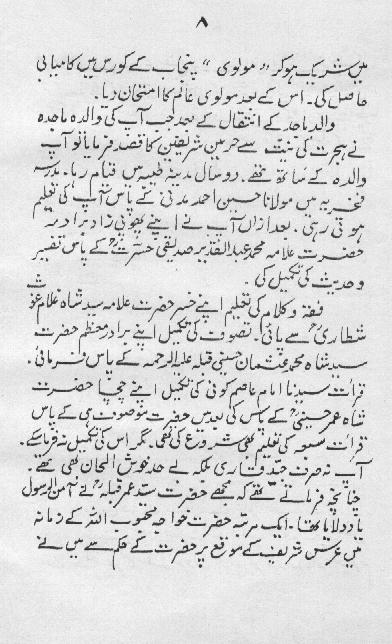 ۸
میں شریک ہو کر "مولوی" پنجاب کے کورس میں کامیابی
حاصل کی۔ اس کے بعد مولوی عالم کا امتحان دیا۔
والد ماجد کے انتقال کے بعد جب آپ کی والدہ ماجدہ
نے ہجرت کی نیت سے حرمین شریفین کا قصد فرمایا تو آپ
والدہ کے ساتھ تھے۔ دو سال مدینہ طیبہ میں قیام رہا۔ مدرسہ
فخریہ میں مولانا حسین احمد مدنی کے پاس آپ کی تعلیم
ہوتی رہی۔ بعد ازاں آپ نے اپنے پھوپی زاد برادر
حضرت علامہ محمد عبد القدیر صدیقی حسرتؒ کے پاس تفسیر
و حدیث کی تکمیل کی۔
فقہ و کلام کی تعلیم اپنے خسر حضرت علامہ سید شاہ غلام غوث
شطاریؒ سے پائی۔ تصوف کی تکمیل اپنے برادر معظم حضرت
سید شاہ محمد عثمان حسینی قبلہ علیہ الرحمہ کے پاس فرمائی۔
قرات سیدنا امام عاصم کوفی کی تکمیل اپنے چچا حضرت
شاہ عمر حسینیؒ کے پاس کی بعد میں حضرت موصوف ہی کے پاس
قرات سبعہ کی تعلیم بھی شروع کی تھی۔ مگر اس کی تکمیل نہ فرما سکے۔
آپ نہ صرف جید قاری بلکہ بے حد خوش الحان بھی تھے۔
چنانچہ فرماتے تھے کہ مجھے حضرت سید عمر قبلہؒ نے آمن الرسول
یاد دلایا تھا۔ ایک مرتبہ حضرت خواجہ محبوب اللہ کے زمانہ
میں عرس شریف کے موقع پر حضرت کے حکم سے میں نے